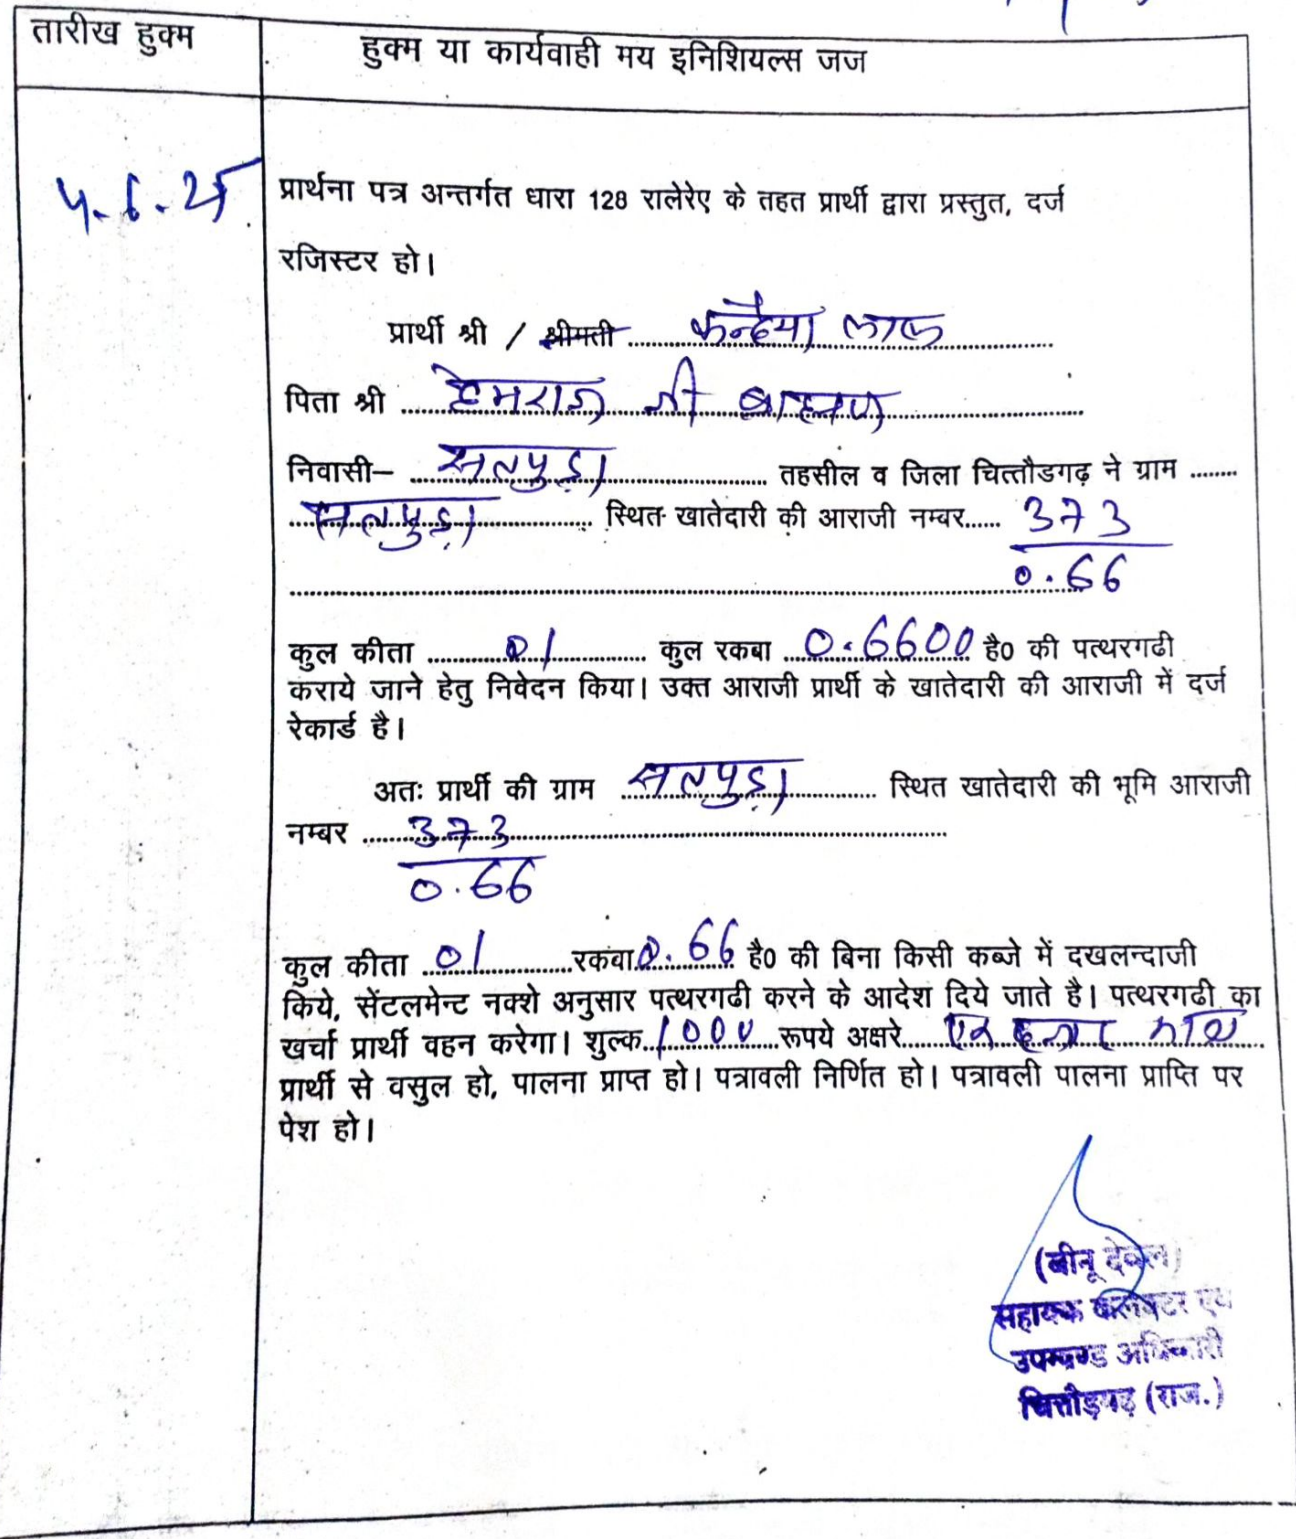 तारीख हुक्म
हुक्म या कार्यवाही मय इनिशियल्स जज
4.6.25
प्रार्थना पत्र अन्तर्गत धारा 128 रालेरेए के तहत प्रार्थी द्वारा प्रस्तुत, दर्ज
रजिस्टर हो।
प्रार्थी श्री / श्रीमती ........ कन्हैया लाल ........
पिता श्री ........ हेमराज जी ब्राह्मण ........
निवासी– ........ सतपुड़ा ........ तहसील व जिला चित्तौडगढ़ ने ग्राम ........
........ सतपुड़ा ........ स्थित खातेदारी की आराजी नम्बर...... 373
........ 0.66
कुल कीता ........ 01 ........ कुल रकबा ........ 0.6600 है0 की पत्थरगढी
कराये जाने हेतु निवेदन किया। उक्त आराजी प्रार्थी के खातेदारी की आराजी में दर्ज
रेकार्ड है।
अतः प्रार्थी की ग्राम ........ सतपुड़ा ........ स्थित खातेदारी की भूमि आराजी
नम्बर ........ 373 ........
0.66
कुल कीता ........ 01 ........ रकबा 0.66 है0 की बिना किसी कब्जे में दखलन्दाजी
किये, सेंटलमेन्ट नक्शे अनुसार पत्थरगढी करने के आदेश दिये जाते है। पत्थरगढी का
खर्चा प्रार्थी वहन करेगा। शुल्क...1000.....रूपये अक्षरे.......एक हजार मात्र
प्रार्थी से वसुल हो, पालना प्राप्त हो। पत्रावली निर्णित हो। पत्रावली पालना प्राप्ति पर
पेश हो।
(बीनू देवल)
सहायक कलक्टर एवं
उपखण्ड अधिकारी
चित्तौड़गढ़ (राज.)